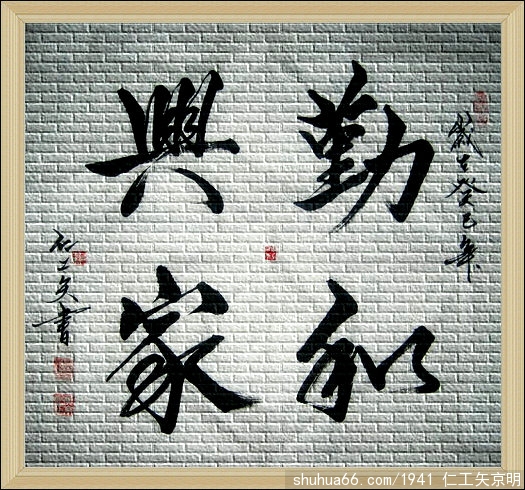 歲癸巳年
勤和
興家
仁工矢書
shuhua66.com/1941 仁工矢京明